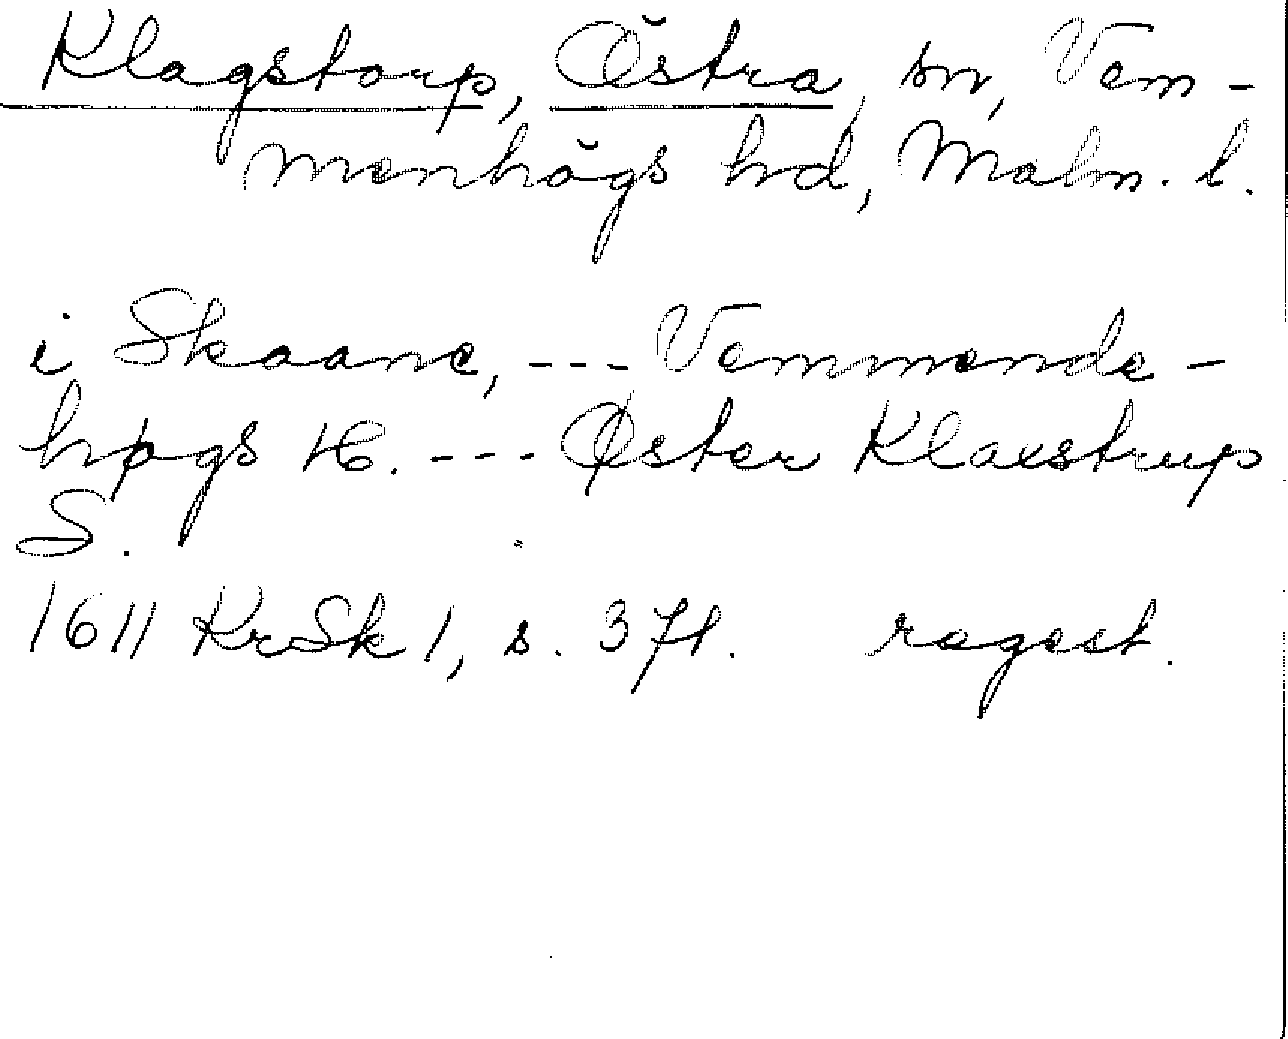 Klagstorp, Östra, sn, Vem-
menhögs hd, Malm. l.
i Skaane, --- Vemmende-
høgs H. --- Øster Klaestrup
S.
1611 KrSk 1, s. 371. regest.